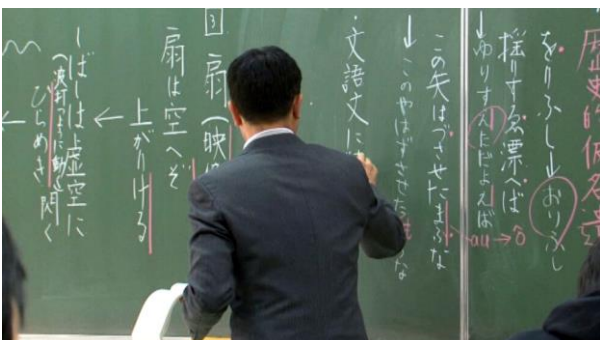 歴史的仮名遣
をりふし↓おりふし
揺りすゑ漂へば
↓ゆりすえただよえば
au→ô
この矢はづさせたまふな
↓このやはずさせた な
・文語文に
3 扇(映
扇は空へぞ
上がりける
↓
しばしは虚空に
ひらめき 閃く